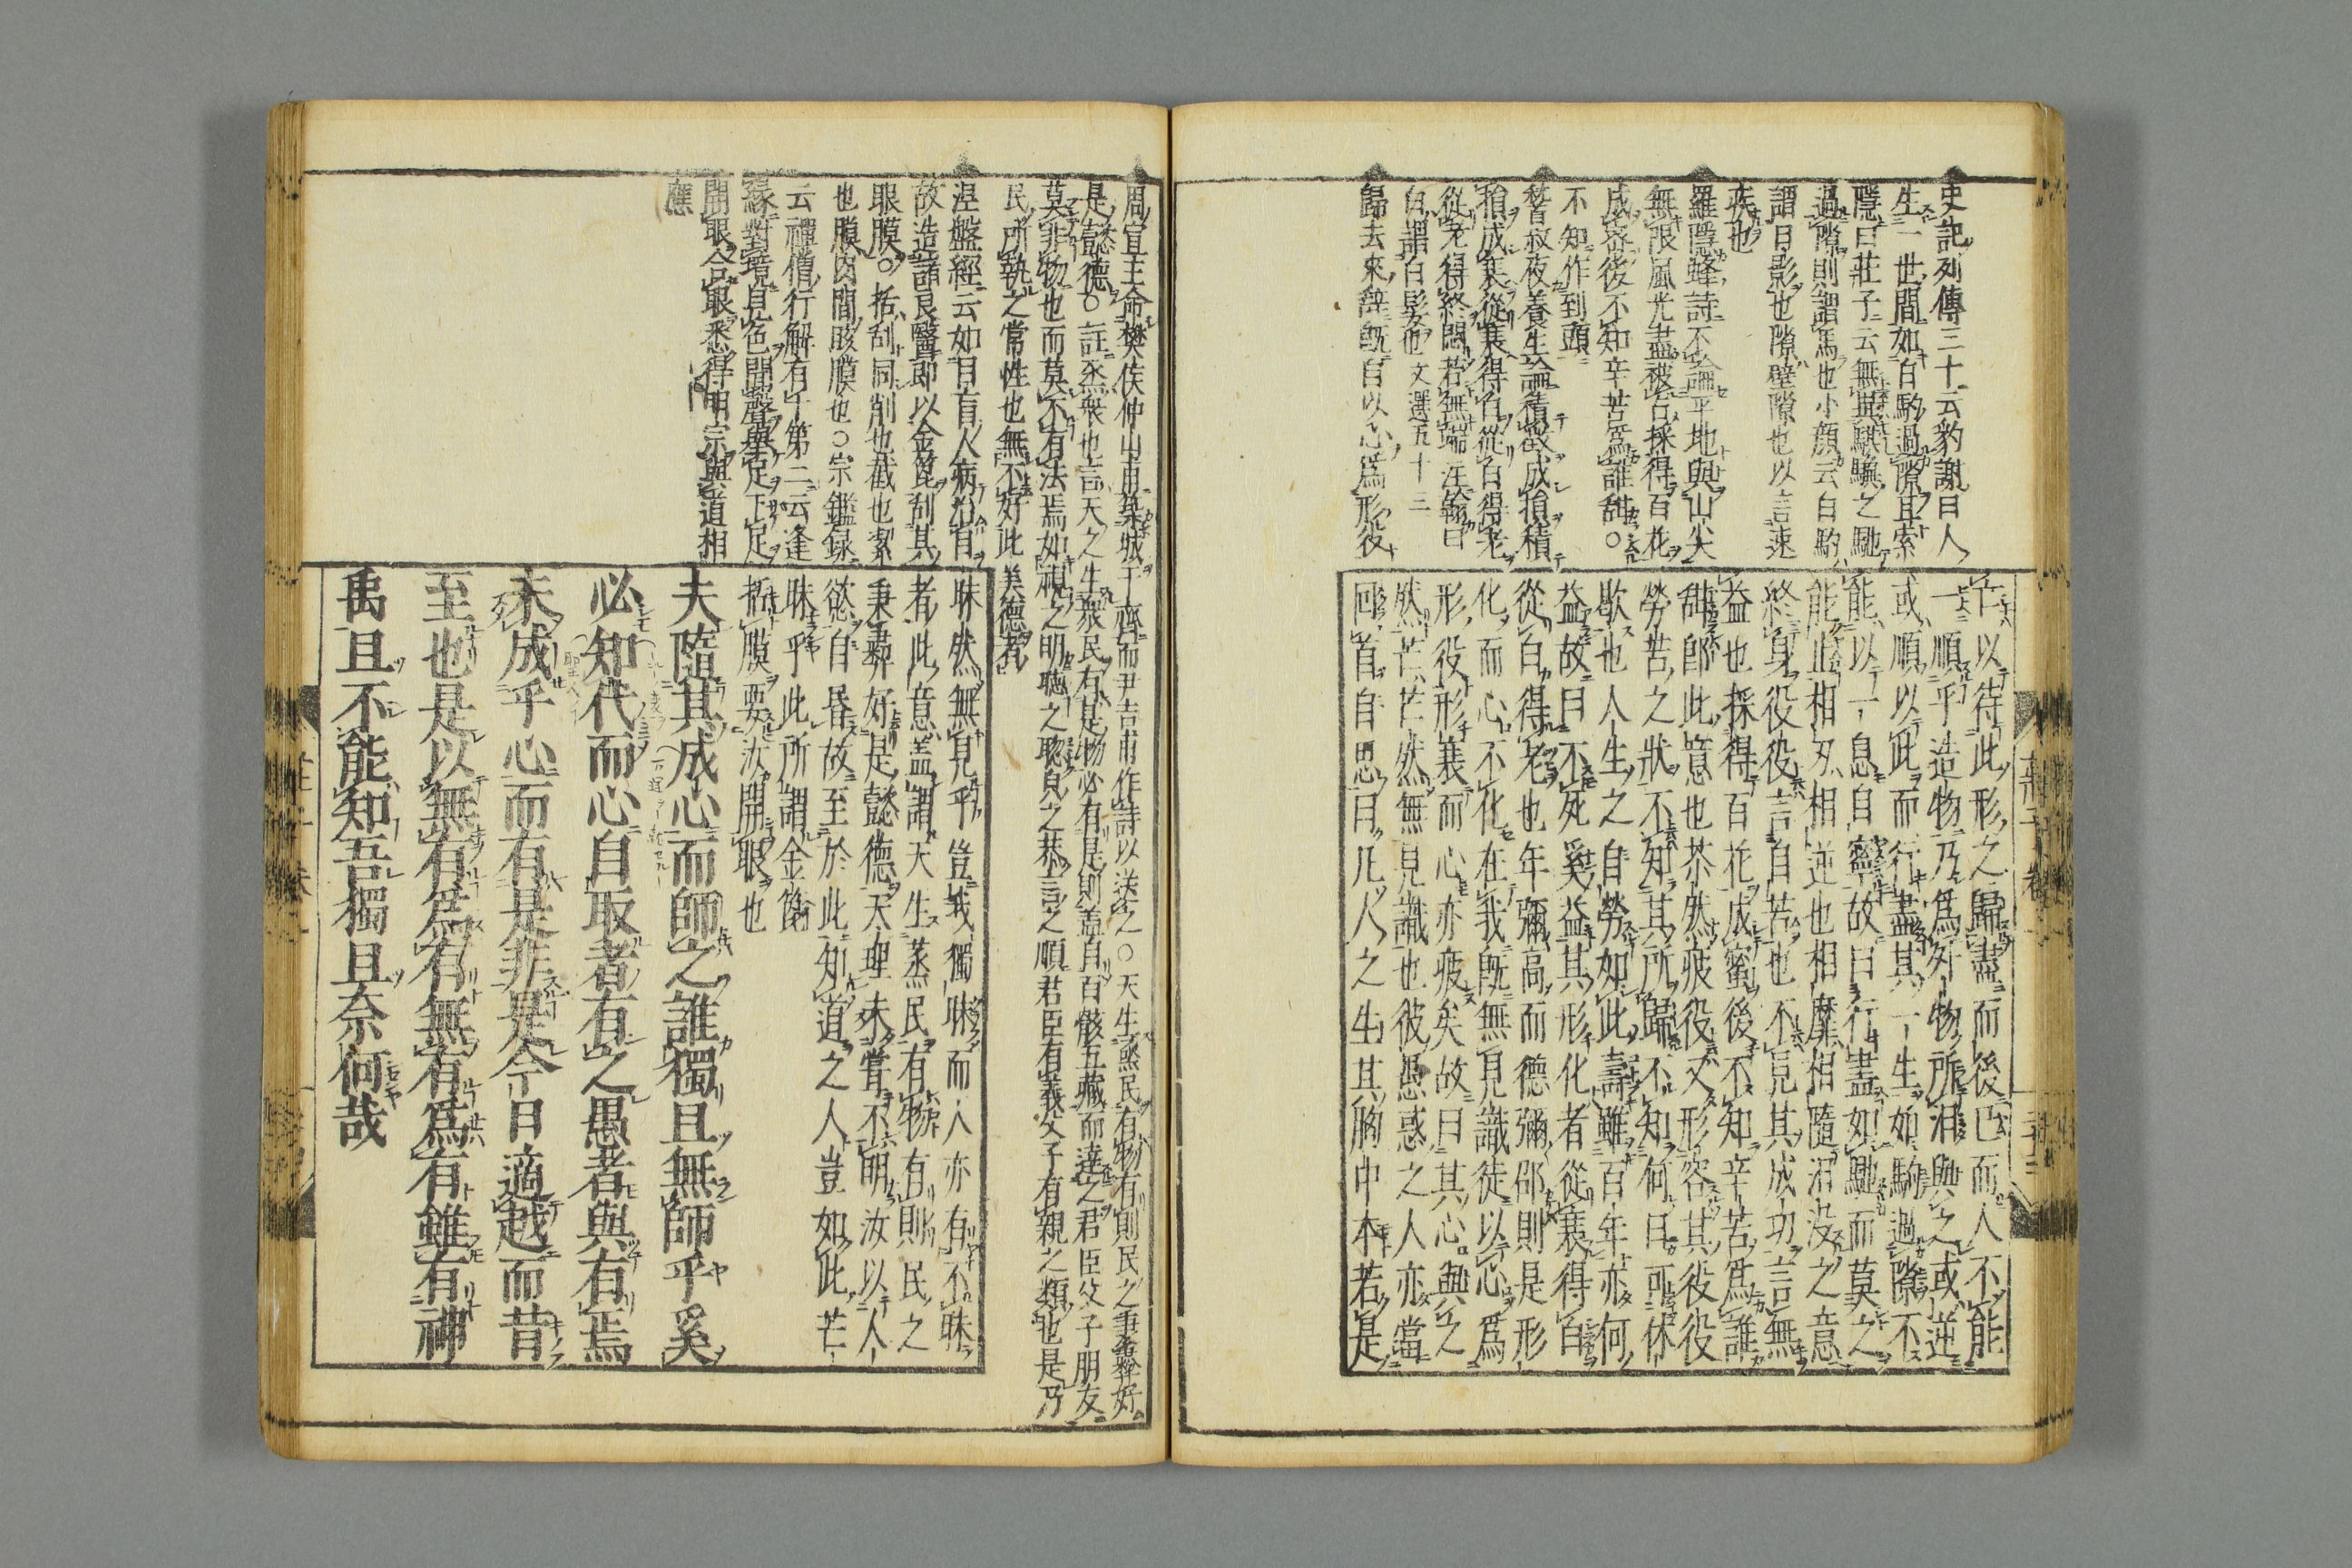 史記列傳三十云豹謝曰人
生一世間如白駒過隙耳索
隱曰莊子云無異騏驥之馳
過隙則謂馬也小顔云白駒
謂日影也隙壁隙也以言速
疾也
羅隱蜂詩不論平地與山尖
無限風光盡被占採得百花
成蜜後不知辛苦爲誰甜○
不知作到頭
嵆叔夜養生論積微成損積
損成衰從衰得白從白得老
從老得終悶若無端注翰曰
白謂白髮也文選五十三
歸去來辭既自以心爲形役
亡以待此形之歸盡而後已而人不能
一順乎造物乃爲外物所汨與之或逆
或順以此而行盡其一生如駒過隙不
能以一息自寧故曰行盡如馳而莫之
能止相刃相逆也相靡相隨汨没之意
終身役役言自苦也不見其成功言無
益也採得百花成蜜後不知辛苦爲誰
甜郎此意也苶然疲役又形容其役役
勞苦之狀不知其所歸不知何日可休
歇也人生之自勞如此壽雖百年亦何
益故曰不死奚益其形化者從衰得白
從白得老也年彌高而德彌邵則是形
化而心不化在我既無見識徒以心爲
形役形衰而心亦疲矣故曰其心與之
然芒芒然無見識也彼愚惑之人亦當
回首自思曰凡人之生其胸中本若是
莊子 卷一
周宣王命樊侯仲山甫築城于齊而尹吉甫作詩以送之○天生烝民有物有則民之秉彝好
是懿德○註烝衆也言天之生衆民有是物必有是則蓋自百骸五臟而達之君臣父子朋友
莫非物也而莫不有法焉如視之明聽之聰貌之恭言之順君臣有義父子有親之類也是乃
民所執之常性也無不好此美德者
涅盤經云如目盲人病治盲
故造諸良醫即以金箆刮其
眼膜○括刮同削也截也絜
也膜肉間胲膜也○宗鑑録
云禪僧行解有十第二云逢
緣對境見色聞聲舉足下足
開眼合眼悉得明宗與道相
應
昧然無見乎豈我獨昧而人亦有不昧
者此意盖謂天生蒸民有物有則民之
秉彝好是懿德天理未嘗不明汝以人
慾自昏故至於此知道之人豈如此芒
昧乎此所謂金箆
括膜要汝開眼也
夫隨其成心而師之誰獨且無師乎奚
必知代而心自取者有之愚者與有焉
未成乎心而有是非是今日適越而昔
至也是以無有爲有無有爲有雖有神
禹且不能知吾獨且奈何哉